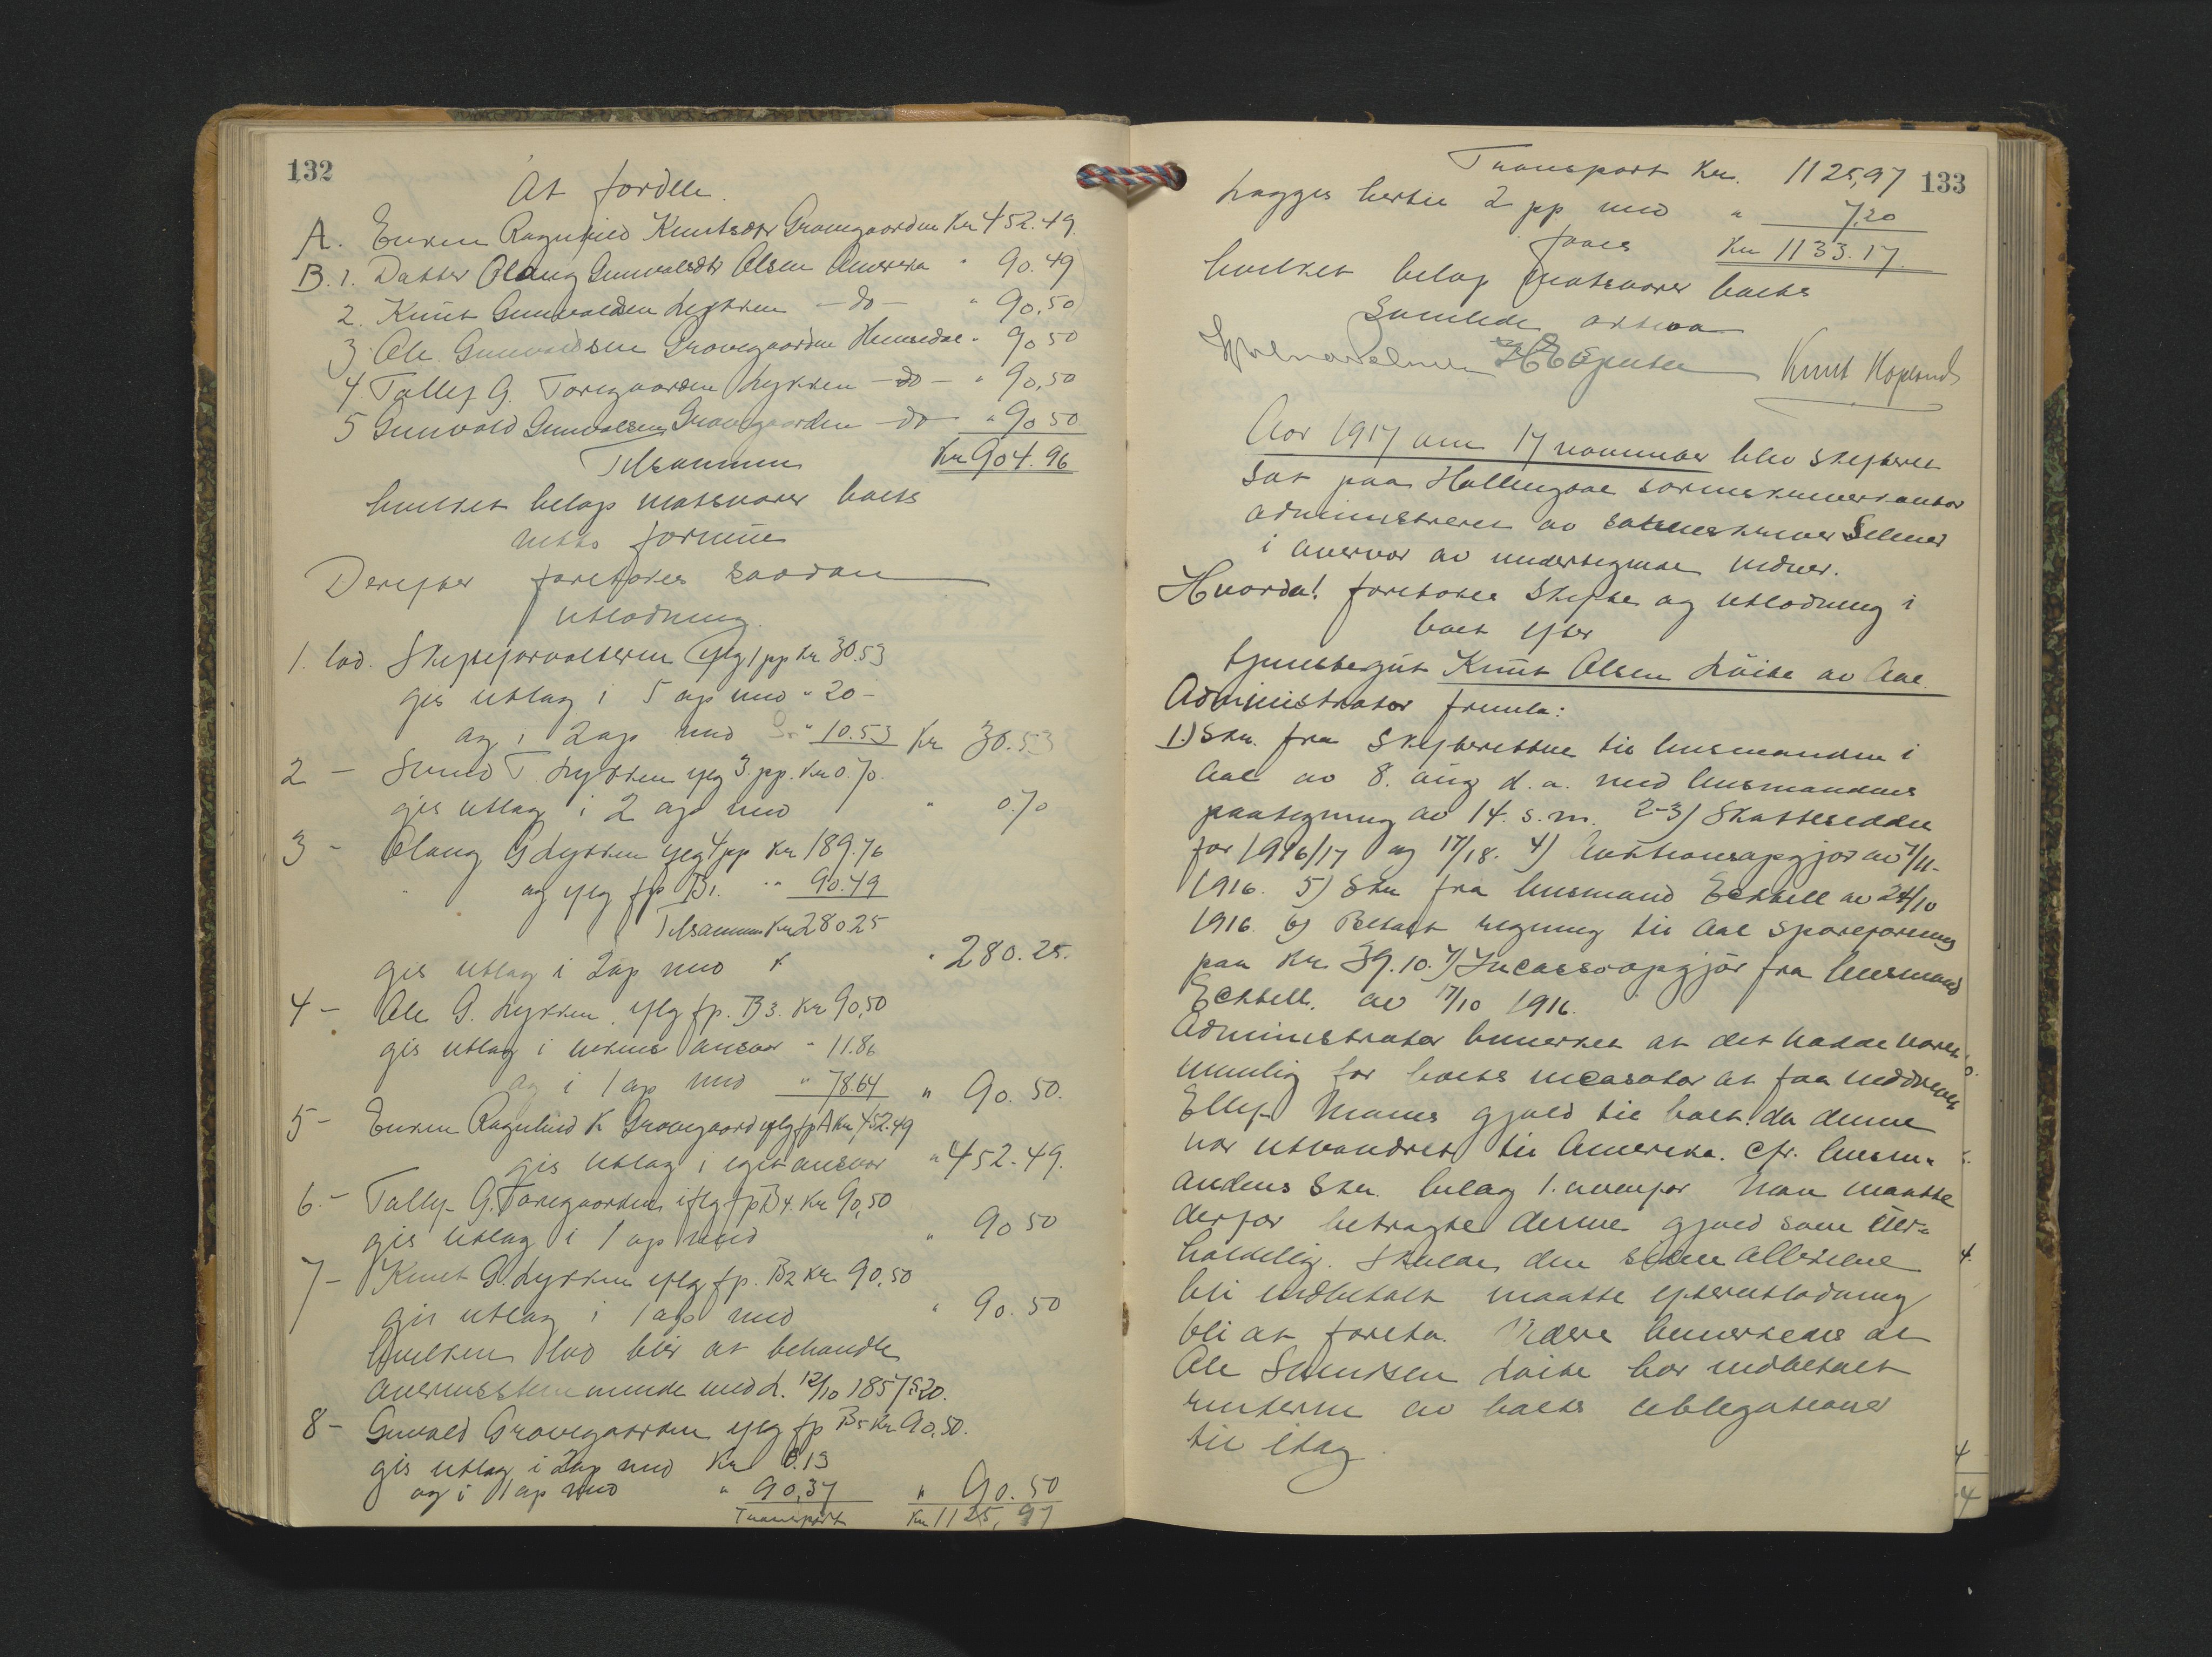 132
At fordele
A. Enken Ragnhild Knutsdtr Grovegaarden Kr 452.49
B. 1. Datter Olaug Gunvalsdtr Olsen Amerika " 90.49
2. Knut Gunvaldsen Lykken - do - " 90,50
3. Ole Gunvaldsen Grovegaarden Hemsedal " 90 50
4 Tollef G. Toregaarden Lykken - do - " 90,50
5 Gunvald Gunvalsen Grovegaarden - do - " 90 50
Tilsammen Kr 904.96
hvilket beløp motsvarer boets
netto formue
Derefter foretokes saadan
utlodning.
1. lod. Skifteforvalteren iflg 1 pp kr 30.53
gis utlæg i 5 ap med " 20 -
og i 2 ap med " 10.53 Kr 30.53
2 - Svend T Lykken iflg 3 pp. Kr 0.70.
gis utlæg i 2 ap med " 0.70
3 - Olaug G Lykken iflg 4 pp Kr 189.76
og iflg fp B1. " 90.49
Tilsammen Kr 280.25
gis utlæg i 2 ap med " 280.25.
4 - Ole G. Lykken iflg fp. B3. Kr 90,50
gis utlæg i enkens ansvar " 11.86
og i 1 ap med " 78.64 " 90.50.
5 - Enken Ragnhild K Grovegaard iflg fp A Kr 452.49
gis utlæg i eget ansvar " 452.49.
6. - Tollef G. Toregaarden iflg fp B4. Kr 90,50
gis utlæg i 1 ap med " 90 50
7 - Knut G. Lykken iflg fp. B2 Kr 90,50
gis utlæg i 1 ap med " 90.50
hvilken lod blir at behandle
overensstemmende med L. 12/10 1857 § 20.
8 - Gunvald Grovegaarden iflg fp B5 Kr 90,50.
gis utlæg i 2 ap med Kr 0.13
og i 1 ap med " 90,37 " 90.50
Transport Kr 1125,97
133
Transport Kr. 1125,97
Lægges hertil 2 pp med " 7,20
faaes Kr 1133.17.
hvilket beløp motsvarer boets
samlede aktiva
Knut Kopland
Aar 1917 den 17 november blev skifteret
sat paa Hallingdal sorenskriverkontor
administreret av sorenskriver Selmer
i overvær av undertegnede vidner.
Hvorda! foretokes skifte og utlodning i
boet efter
tjenestegut Knut Olsen Løite av Aal
Administrator fremla:
1.) Skr. fra skifteretten til lensmanden i
Aal av 8. aug d. a. med lensmandens
paategning av 14. s. m. 2-3) Skattesedler
for 1916/17 og 17/18. 4) Auktionsopgjør av 7/11-
1916. 5) Skr fra lensmand Eckbell av 24/10
1916. 6) Betalt regning til Aal Spareforening
paa Kr. 39.10. 7) Incassoopgjør fra lensmand
Eckbell. av 17/10 1916.
Administrator bemerket at det hadde været
umulig for boets incasator at faa inddrevet
Ellef gjæld til boet da denne
var utvandret til Amerika. cfr. lensm-
andens skr. bilag 1. ovenfor Man maatte
derfor betragte denne gjæld som uer-
holdelig. Skulde den siden allikevel
bli indbetalt maatte efterutlodning
bli at foreta. Videre bemerkedes at
Ole Svendsen Løite har indbetalt
renterne av boets obligationer
til idag.